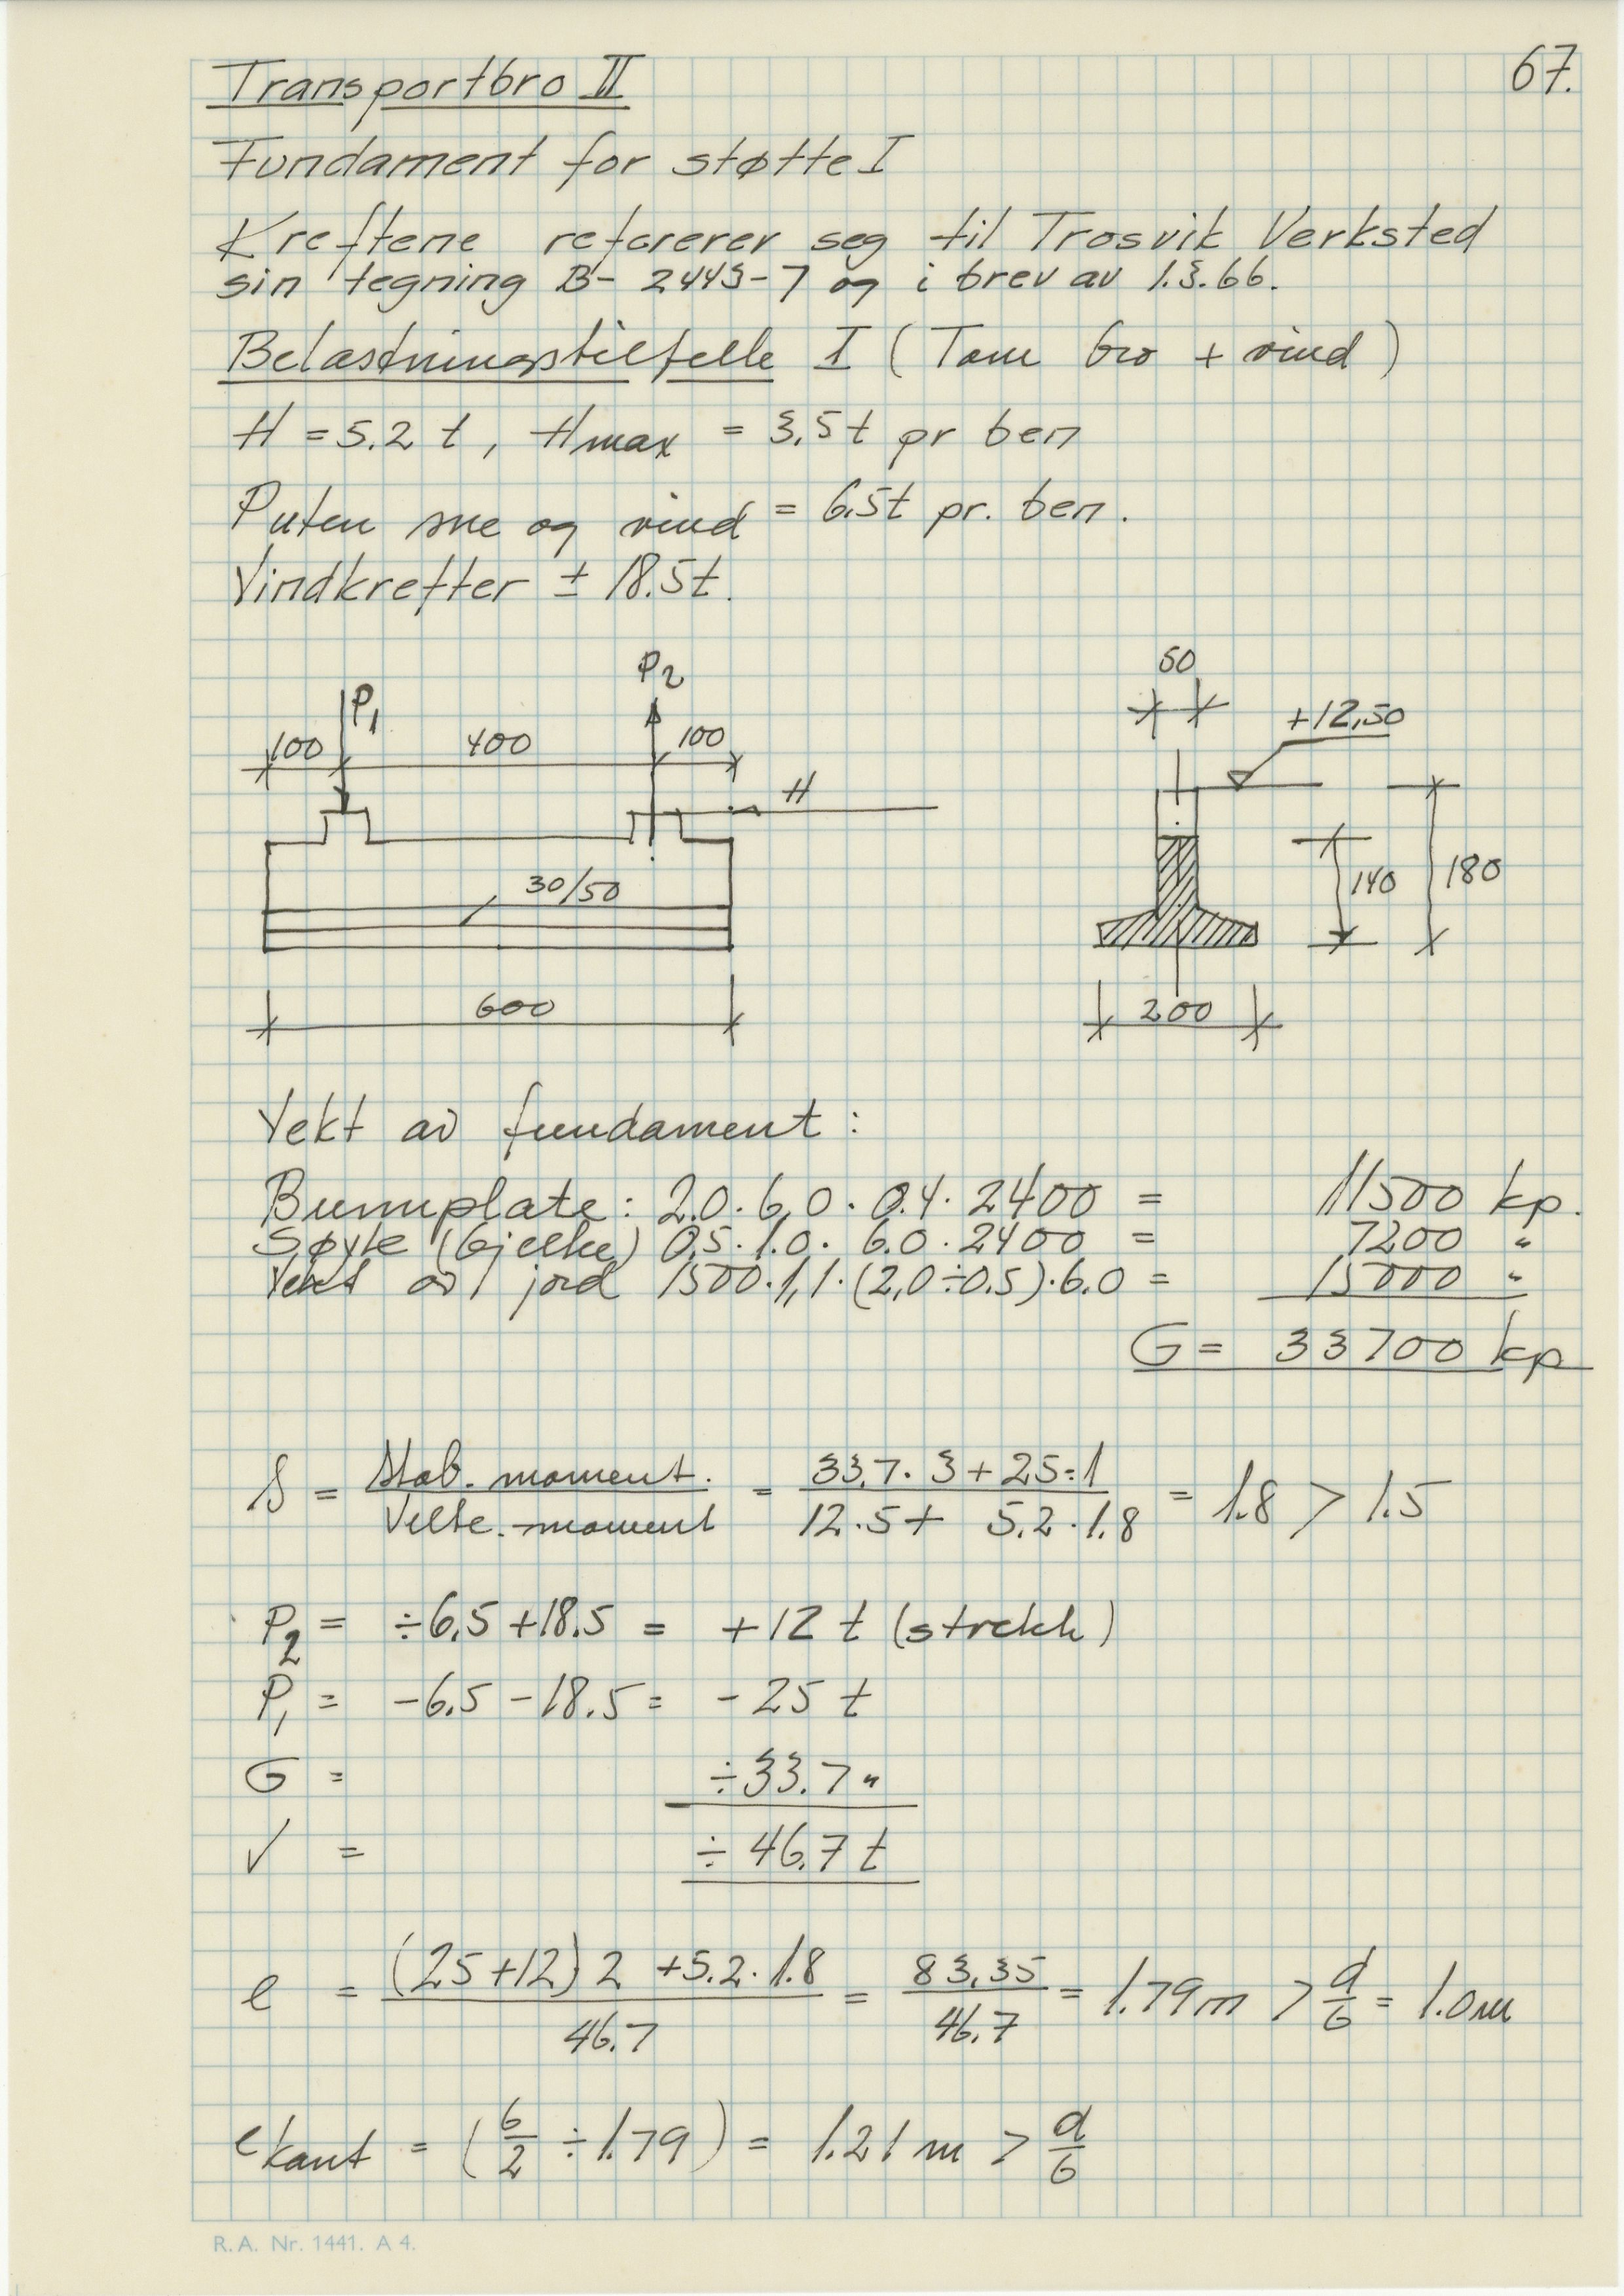 67.
Transportbro II
Fundament for støtte I
Kreftene refererer seg til Trosvik Verksted
sin tegning B- 2443-7 og i brev av 1.3.66.
Belastningstilfelle I (Tom bro + vind)
H = 5.2 t, Hmax = 3.5t pr ben
Puten sne og vind = 6.5t pr. ben.
Vindkrefter ± 18.5t.
P1
P2
100
400
100
H
30/50
600
50
+12,50
140
180
200
Vekt av fundament:
Bunnplate: 2.0 · 6.0 · 0.4 · 2400 = 11500 kp.
Søyle (bjelke) 0.5 · 1.0 · 6.0 · 2400 = 7200 "
Vekt av jord 1500 · 1,1 · (2,0 ÷ 0.5) · 6.0 = 15000 "
G = 33700 kp
S = Stab. moment. / Velte. moment = 33.7 · 3 + 25 · 1 / 12 · 5 + 5.2 · 1.8 = 1.8 > 1.5
P2 = ÷ 6.5 + 18.5 = + 12 t (strekk)
P1 = - 6.5 - 18.5 = - 25 t
G = ÷ 33.7 "
V = ÷ 46.7 t
e = (25 + 12) 2 + 5.2 · 1.8 / 46.7 = 83.35 / 46.7 = 1.79 m > d/6 = 1.0 m
e kant = (6/2 ÷ 1.79) = 1.21 m > d/6
R.A. Nr. 1441. A 4.